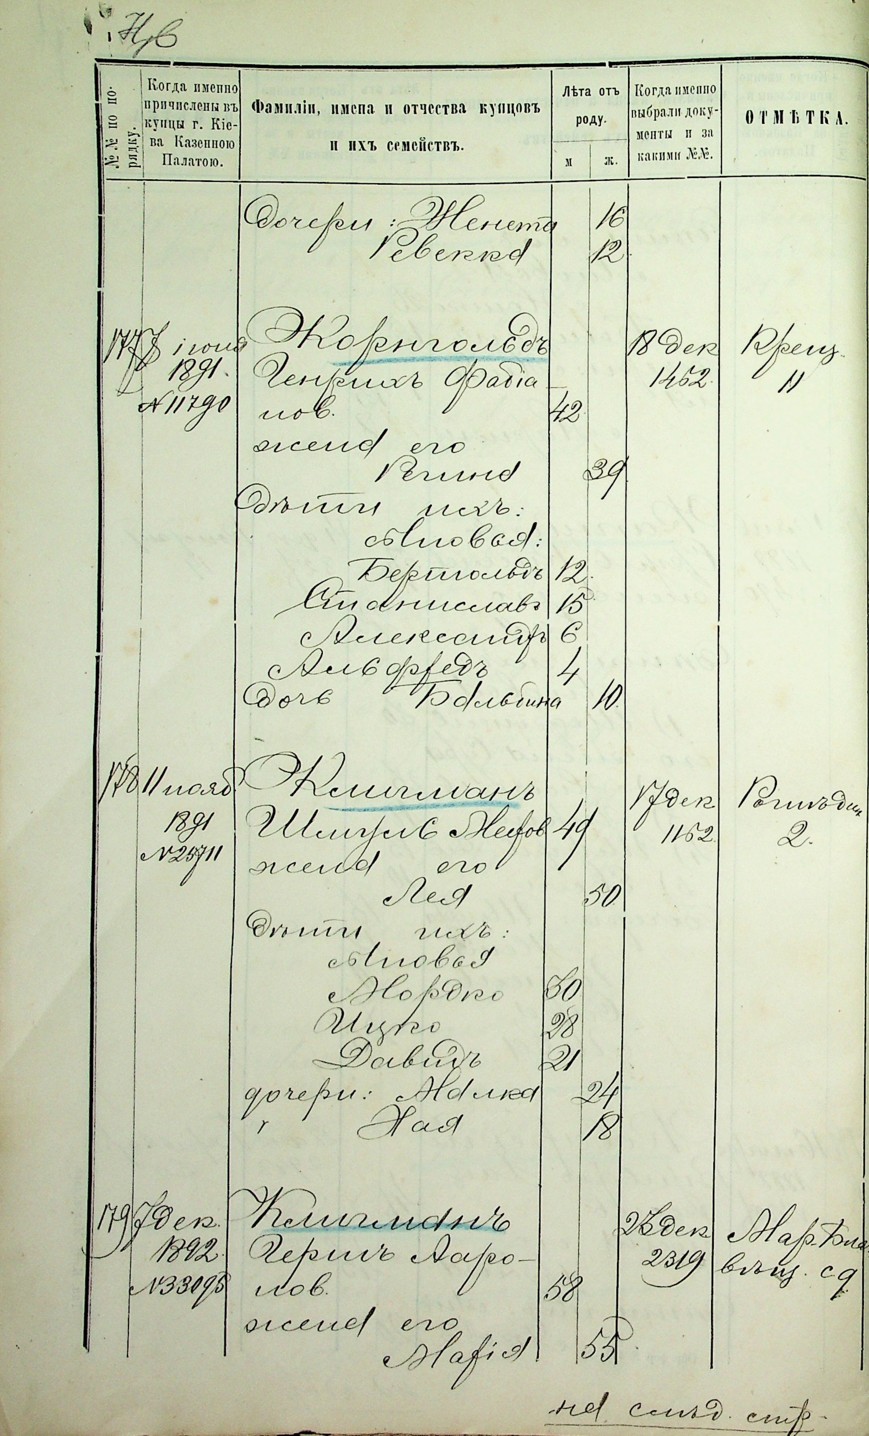 №№ по порядку.
Когда именно причислены въ купцы г. Кіева Казенною Палатою.
Фамиліи, имена и отчества купцовъ и ихъ семействъ.
Лѣта отъ роду.
м ж.
Когда именно выбрали документы и за какими №№.
ОТМѢТКА.
Дочери: Женета 16
Ревекка 12
177 7 іюня Корнгольдъ 18 дек Крещ.
1891. Генрихъ Фабіа- 1452. 11
№ 11790 нов. 42
жена его
Регина 39
Дѣти ихъ:
сыновья:
Бертольдъ 12.
Станиславъ 15
Александръ 6
Альфредъ 4
Дочь Бальбина 10.
178 11 нояб Клигманъ 17 дек
1891 Шмуль Мееров 49 1152 2.
№ 25711 жена его
Лея 50
Дѣти ихъ:
сыновья
Мордко 30
Ицко 28
Давидъ 21
дочери: Малка 24
Хая 18
179 7 дек. Клигманъ 23 дек Мар. Бла
1892. Гершъ Ааро- 2319 вѣщ. 59
№ 33093 нов. 58
жена его
Марія 55
на слѣд. стр.